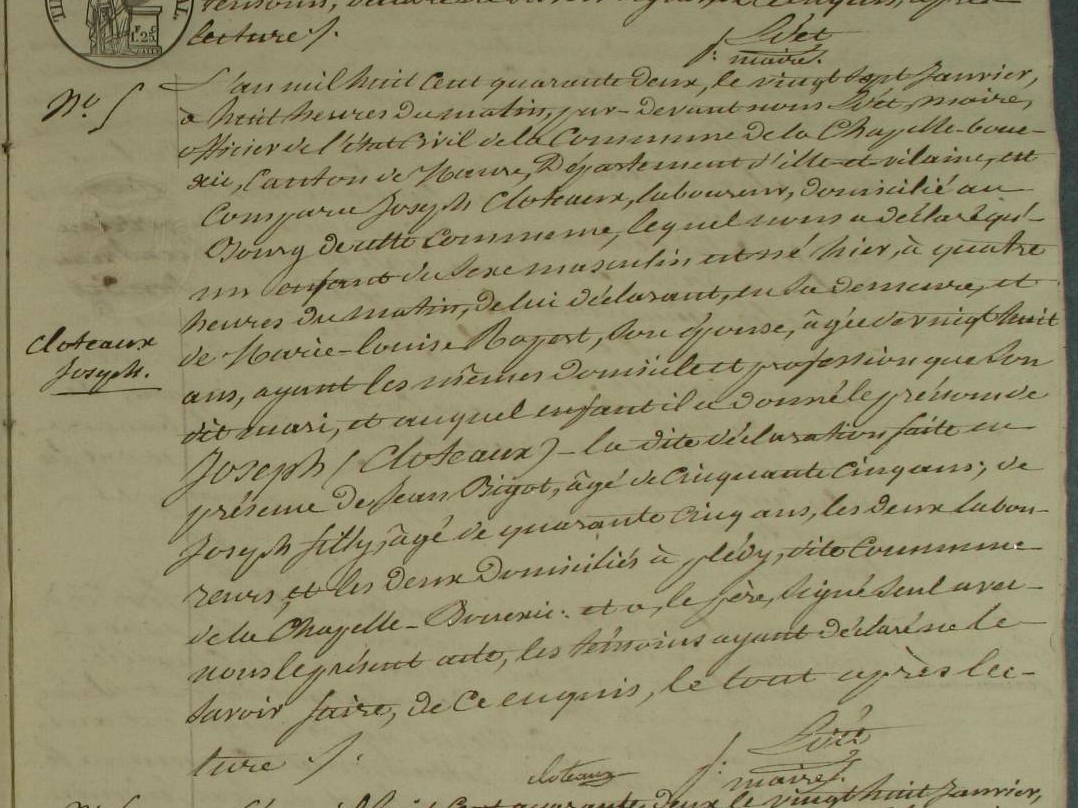 lecture /.
maire.
N.º 5
L'an mil huit cent quarante deux, le vingt sept Janvier,
à huit heures du matin, par-devant nous maire,
officier de l'état Civil de la Commune de la Chapelle-boue-
xic, Canton de Maure, Département d'ille-et-vilaine, est
Comparu Joseph Cloteaux, laboureur, domicilié au
Bourg de cette Commune, lequel nous a déclaré qu'-
un enfant du sexe masculin est né hier, à quatre
heures du matin, de lui déclarant, en sa demeure, et
de Marie-Louise Ropert, son épouse, âgée de vingt huit
cloteaux
Joseph.
ans, ayant les mêmes domicile et profession que son
dit mari, et auquel enfant il a donné le prénom de
Joseph (Cloteaux) - la dite déclaration faite en
présence de Jean Bigot, âgé de Cinquante Cinq ans; de
Joseph filly, âgé de quarante Cinq ans, les deux labou-
reurs, et les deux Domiciliés à dite Commune
de la Chapelle-Bouexic: et a, le père, signé seul avec
nous le présent acte, les témoins ayant déclaré ne le
savoir faire, de Ce enquis, le tout après lec-
ture /.
cloteaux
maire.
quarante deux le vingt huit Janvier,